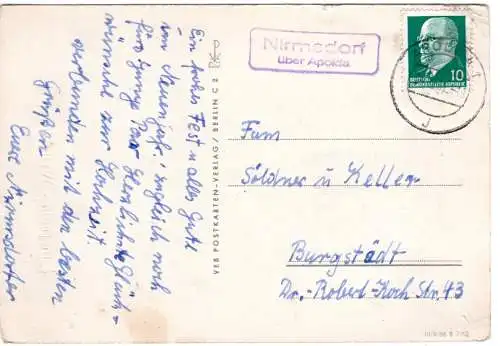 Ein frohes Fest u. alles Gute
im Neuen Jahr! Zugleich noch
fürs junge Paar Herzliche Glück-
wünsche zur Hochzeit.
verbunden mit den besten
Grüßen
Eure Nirmsdorfer
VEB POSTKARTEN-VERLAG / BERLIN C 2
Nirmsdorf
über Apolda
10
DEUTSCHE
DEMOKRATISCHE REPUBLIK
Fam
Söldner u Keller
Burgstädt
Dr.-Robert-Koch Str. 43